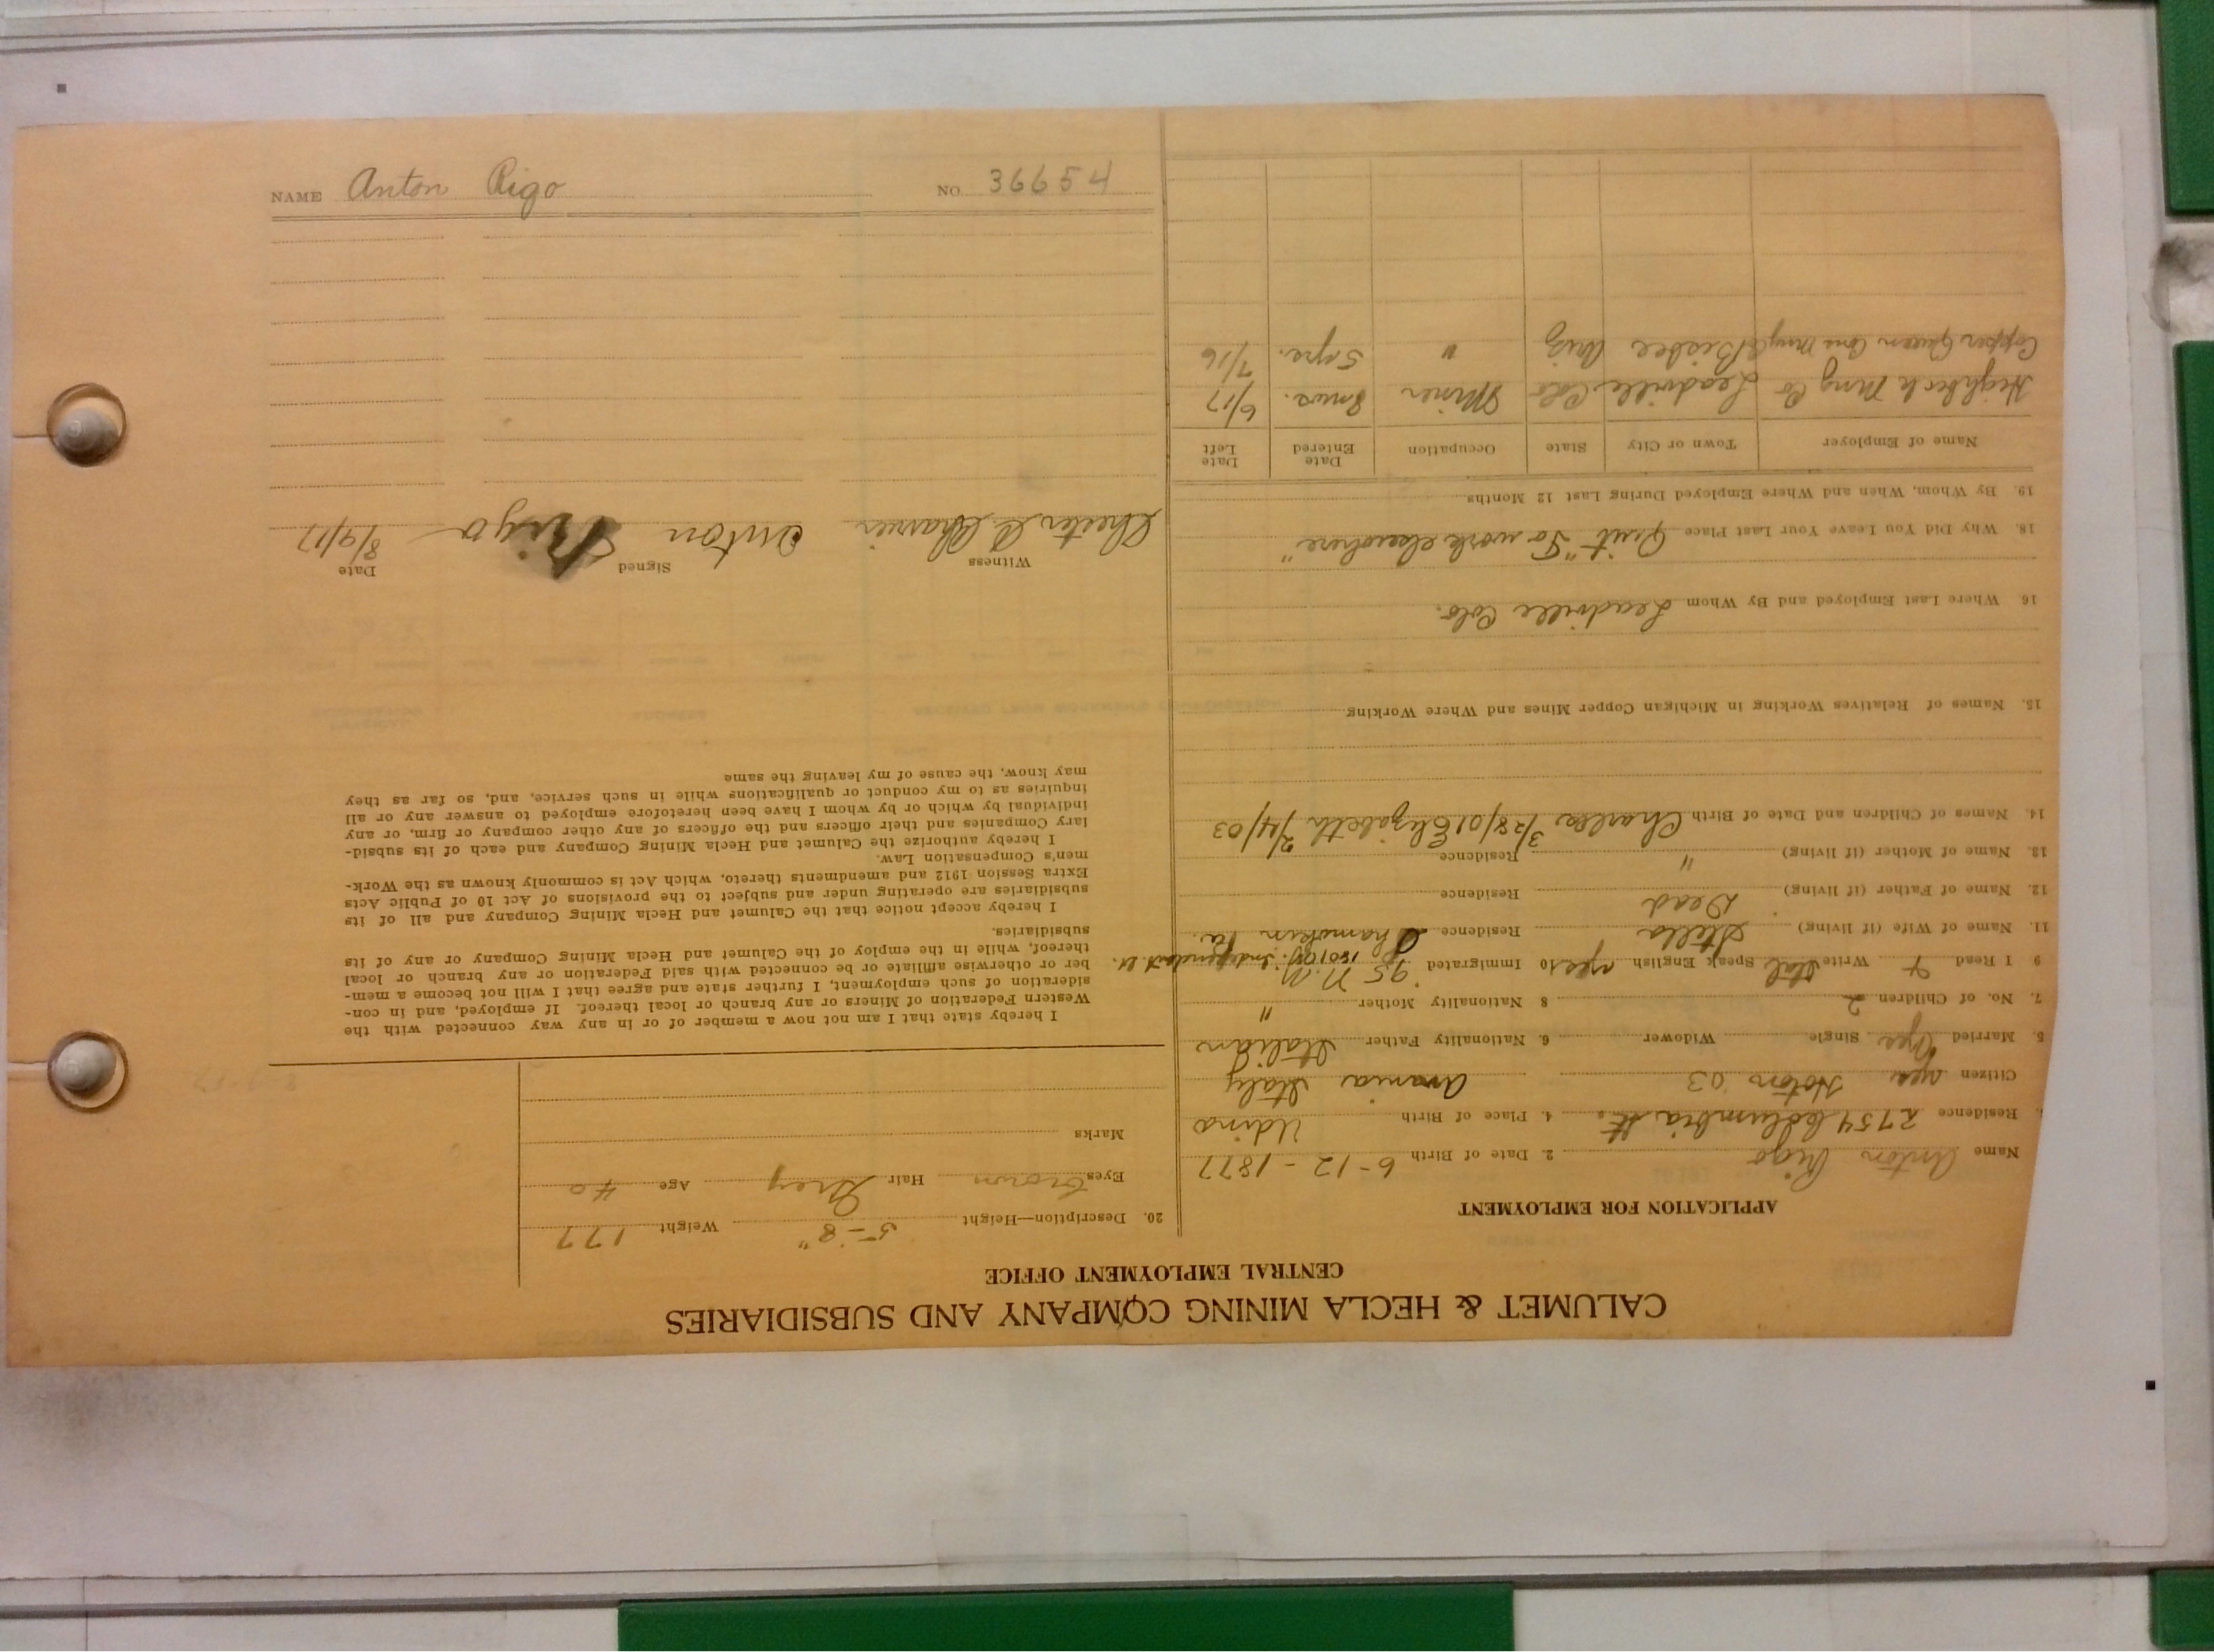 CALUMET & HECLA MINING COMPANY AND SUBSIDIARIES
CENTRAL EMPLOYMENT OFFICE
APPLICATION FOR EMPLOYMENT
Name Anton Rigo 2. Date of Birth 6-12-1877
Residence 2754 Columbia St. 4. Place of Birth Udino
Citizen yes 03 Italy
5. Married Yes Single Widower 6. Nationality Father Italian
7. No. of Children 2 8 Nationality Mother "
9 I Read + Write Ital Speak English yes 10 Immigrated '95 N.Y.
11. Name of Wife (if living) Stella Residence Shamokin Pa.
12. Name of Father (if living) Dead Residence
13. Name of Mother (if living) " Residence
14. Names of Children and Date of Birth Charles 3/28/01 Elizabeth 2/4/03
15. Names of Relatives Working in Michigan Copper Mines and Where Working
16 Where Last Employed and By Whom Leadville Colo.
18. Why Did You Leave Your Last Place Quit "To work elsewhere"
19. By Whom, When and Where Employed During Last 12 Months
Name of Employer Town or City State Occupation Date Entered Date Left
Mng Co Leadville Colo Miner 8 mos. 6/17
Copper Queen Cons Mng Co Bisbee Ariz " 5 yrs. 7/16
20. Description—Height 5-8" Weight 177
Eyes brown Hair Grey Age 40
Marks
I hereby state that I am not now a member of or in any way connected with the
Western Federation of Miners or any branch or local thereof. If employed, and in con-
sideration of such employment, I further state and agree that I will not become a mem-
ber or otherwise affiliate or be connected with said Federation or any branch or local
thereof, while in the employ of the Calumet and Hecla Mining Company or any of its
subsidiaries.
I hereby accept notice that the Calumet and Hecla Mining Company and all of its
subsidiaries are operating under and subject to the provisions of Act 10 of Public Acts
Extra Session 1912 and amendments thereto, which Act is commonly known as the Work-
men's Compensation Law.
I hereby authorize the Calumet and Hecla Mining Company and each of its subsid-
iary Companies and their officers and the officers of any other company or firm, or any
individual by which or by whom I have been heretofore employed to answer any or all
inquiries as to my conduct or qualifications while in such service, and, so far as they
may know, the cause of my leaving the same
Witness Signed Date
Chester Anton Rigo 8/9/17
NAME Anton Rigo NO. 36654